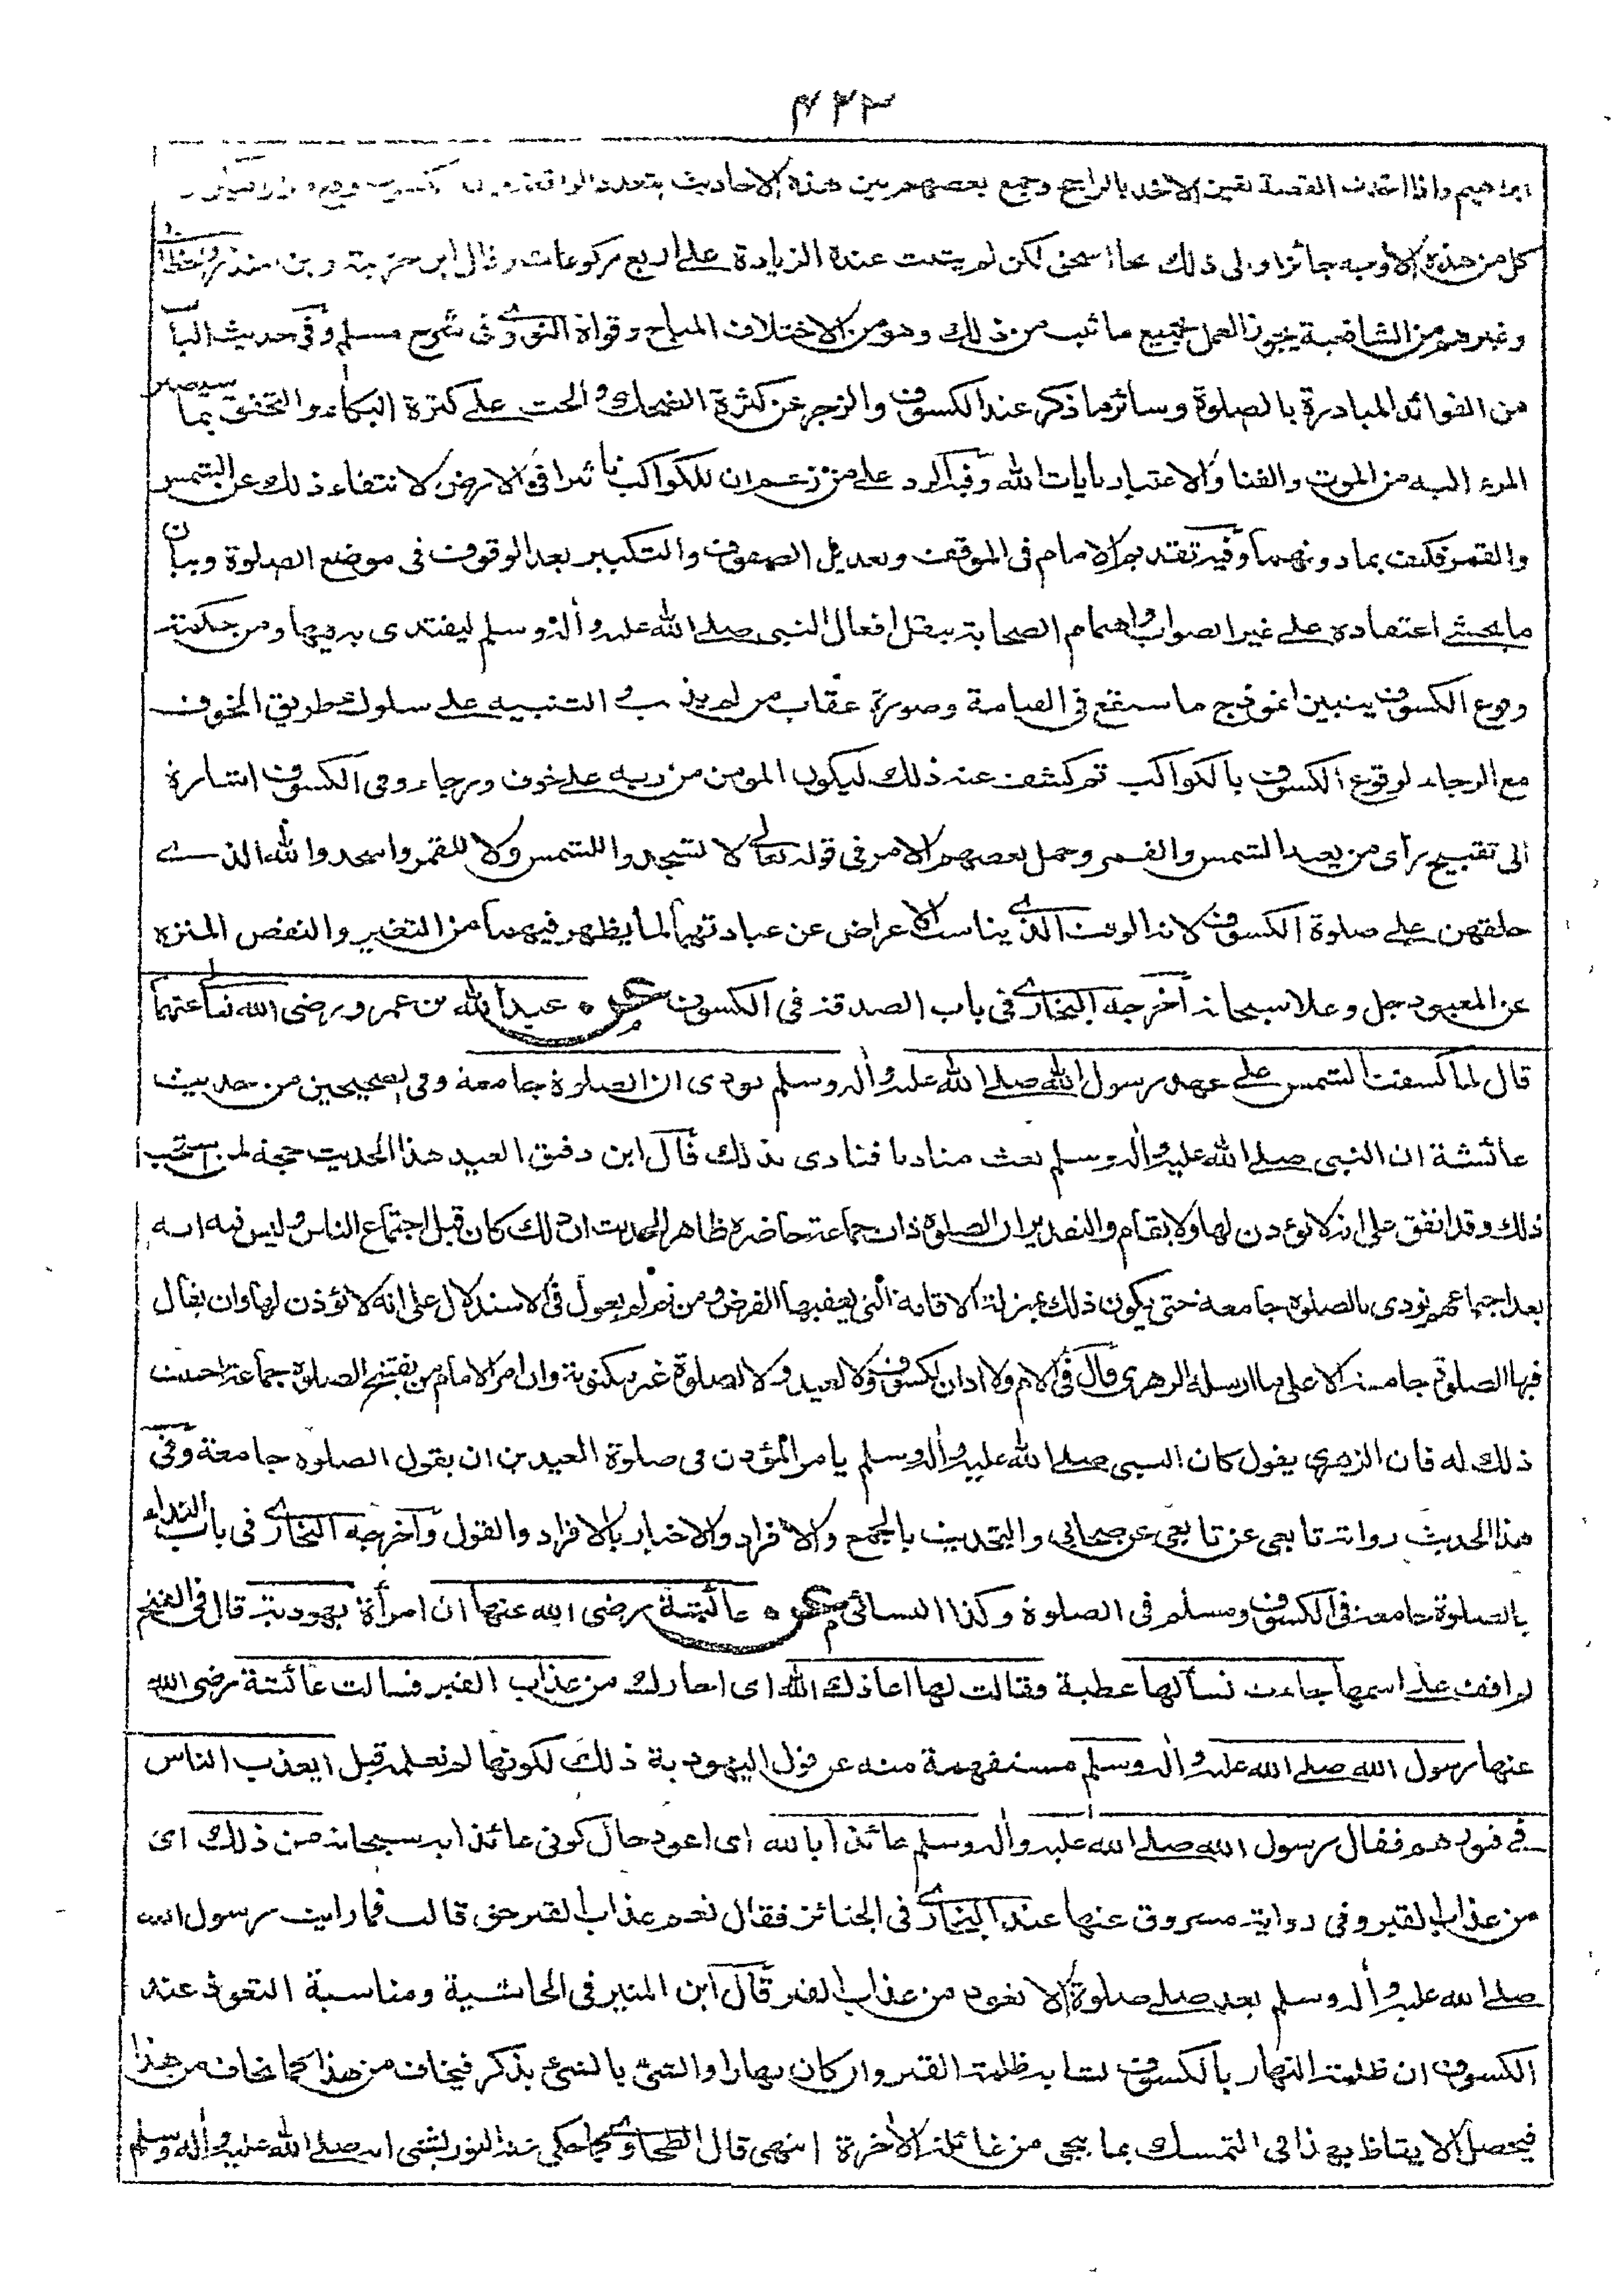 ٤٣٣
ابراهيم واذا اتحدت القصة تعين الاخذ بالراجح وجمع بعضهم بين هذه الاحاديث بتعدد الواقعة وان الكسوف وقع مرارا فيكون
كل من هذه الاوجه جائزا والى ذلك نحا اسحق لكن لم يثبت عنده الزيادة على اربع ركوعات وقال ابن خزيمة وابن منذر والخطابي
وغيرهم من الشافعية يجوز العمل بجميع ما ثبت من ذلك وهو من الاختلاف المباح وقواه النووي في شرح مسلم وفي حديث الباب
من الفوائد المبادرة بالصلوة وسائر ما ذكر عند الكسوف والزجر عن كثرة الضحك والحث على كثرة البكاء والتحقق بما سيصير
المرء اليه من الموت والفنا والاعتبار بايات الله وفيه الرد على من زعم ان للكواكب تاثيرا في الارض لانتفاء ذلك عن الشمس
والقمر فكيف بما دونهما وفيه تقديم الامام في الموقف وتعديل الصفوف والتكبير بعد الوقوف في موضع الصلوة وبيان
ما يخشى اعتقاده على غير الصواب واهتمام الصحابة بنقل افعال النبي صلى الله عليه واله وسلم ليقتدى به فيها ومن حكمة
وقوع الكسوف يتبين انموذج ما سيقع في القيامة وصورة عقاب من لم يذنب والتنبيه على سلوك طريق الخوف
مع الرجاء لوقوع الكسوف بالكواكب ثم كشف عنه ذلك ليكون المومن من ربه على خوف ورجاء وفى الكسوف اشارة
الى تقبيح رأى من يعبد الشمس والقمر وحمل بعضهم الامر في قوله تعالى لا تسجدوا للشمس ولا للقمر واسجدوا لله الذي
خلقهن على صلوة الكسوف لانه الوقت الذي يناسب الاعراض عن عبادتهما لما يظهر فيهما من التغير والنقص المنزه
عن المعبود جل وعلا سبحانه اخرجه البخاري في باب الصدقة في الكسوف عن عبد الله بن عمرو رضى الله تعا عنهما
قال لما كسفت الشمس على عهد رسول الله صلى الله عليه واله وسلم نودى ان الصلوة جامعة وفى الصحيحين من حديث
عائشة ان النبي صلى الله عليه واله وسلم بعث مناديا فنادى بذلك قال ابن دقيق العيد هذا الحديث حجة لمن استحب
ذلك وقد اتفق على انه لا يؤذن لها ولا يقام والتقدير ان الصلوة ذات جماعة حاضرة ظاهر الحديث ان ذلك كان قبل اجتماع الناس وليس فيه انه
بعد اجتماعهم نودى بالصلوة جامعة حتى يكون ذلك بمنزلة الاقامة التى يعقبها الفرض ومن ثم لم يعول في الاستدلال على انه لا يؤذن لها وان يقال
فيها الصلوة جامعة الا على ما ارسله الزهرى قال في الام ولا اذان لكسوف ولا لعيد ولا لصلوة غير مكتوبة وان امر الامام من يفتتح الصلوة جماعة احببت
ذلك له فان الزهري يقول كان النبي صلى الله عليه واله وسلم يامر المؤذن في صلوة العيدين ان يقول الصلوة جامعة وفي
هذا الحديث رواية تابعى عن تابعى عن صحابي والتحديث بالجمع والافراد والاخبار بالافراد والقول واخرجه البخاري في باب النداء
بالصلوة جامعة في الكسوف ومسلم في الصلوة وكذا النسائي عن عائشة رضى الله عنها ان امرأة يهودية قال في الفتح
لم اقف على اسمها جاءت تسألها عطية وقالت لها اعاذك الله اى اجارك من عذاب القبر فسالت عائشة رضى الله
عنها رسول الله صلى الله عليه واله وسلم مستفهمة منه عن قول اليهودية ذلك لكونها لم تعلمه قبل ايعذب الناس
في قبورهم فقال رسول الله صلى الله عليه واله وسلم عائذا بالله اى اعوذ حال كونى عائذا به سبحانه من ذلك اى
من عذاب القبر وفى رواية مسروق عنها عند البخاري في الجنائز فقال نعم عذاب القبر حق قالت فما رايت رسول الله
صلى الله عليه واله وسلم بعد صلى صلوة الا تعوذ من عذاب القبر قال ابن المنير في الحاشية ومناسبة التعوذ عند
الكسوف ان ظلمة النهار بالكسوف تشابه ظلمة القبر وان كان نهارا والشئ بالشئ يذكر فيخاف من هذا كما يخاف من هذا
فيحصل الاتعاظ بهذا في التمسك بما ينجى من غائلة الاخرة انتهى قال الطحاوي كما حكى عنه النوربشتى انه صلى الله عليه واله وسلم